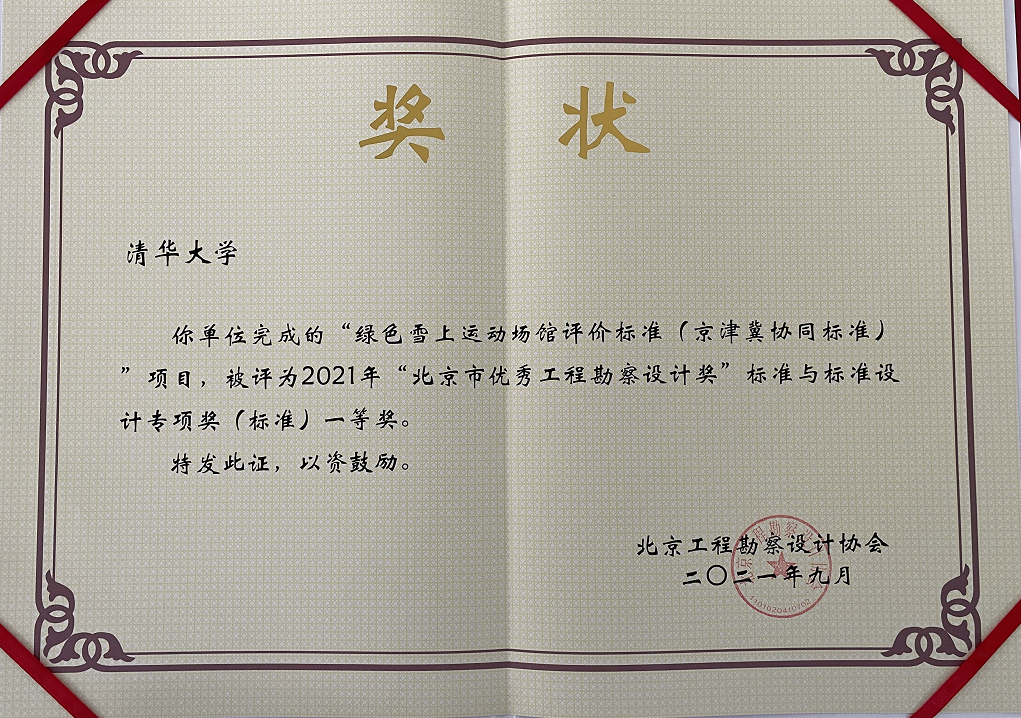 奖 状
清华大学
你单位完成的“绿色雪上运动场馆评价标准（京津冀协同标准）
”项目，被评为2021年“北京市优秀工程勘察设计奖”标准与标准设
计专项奖（标准）一等奖。
特发此证，以资鼓励。
北京工程勘察设计协会
二〇二一年九月